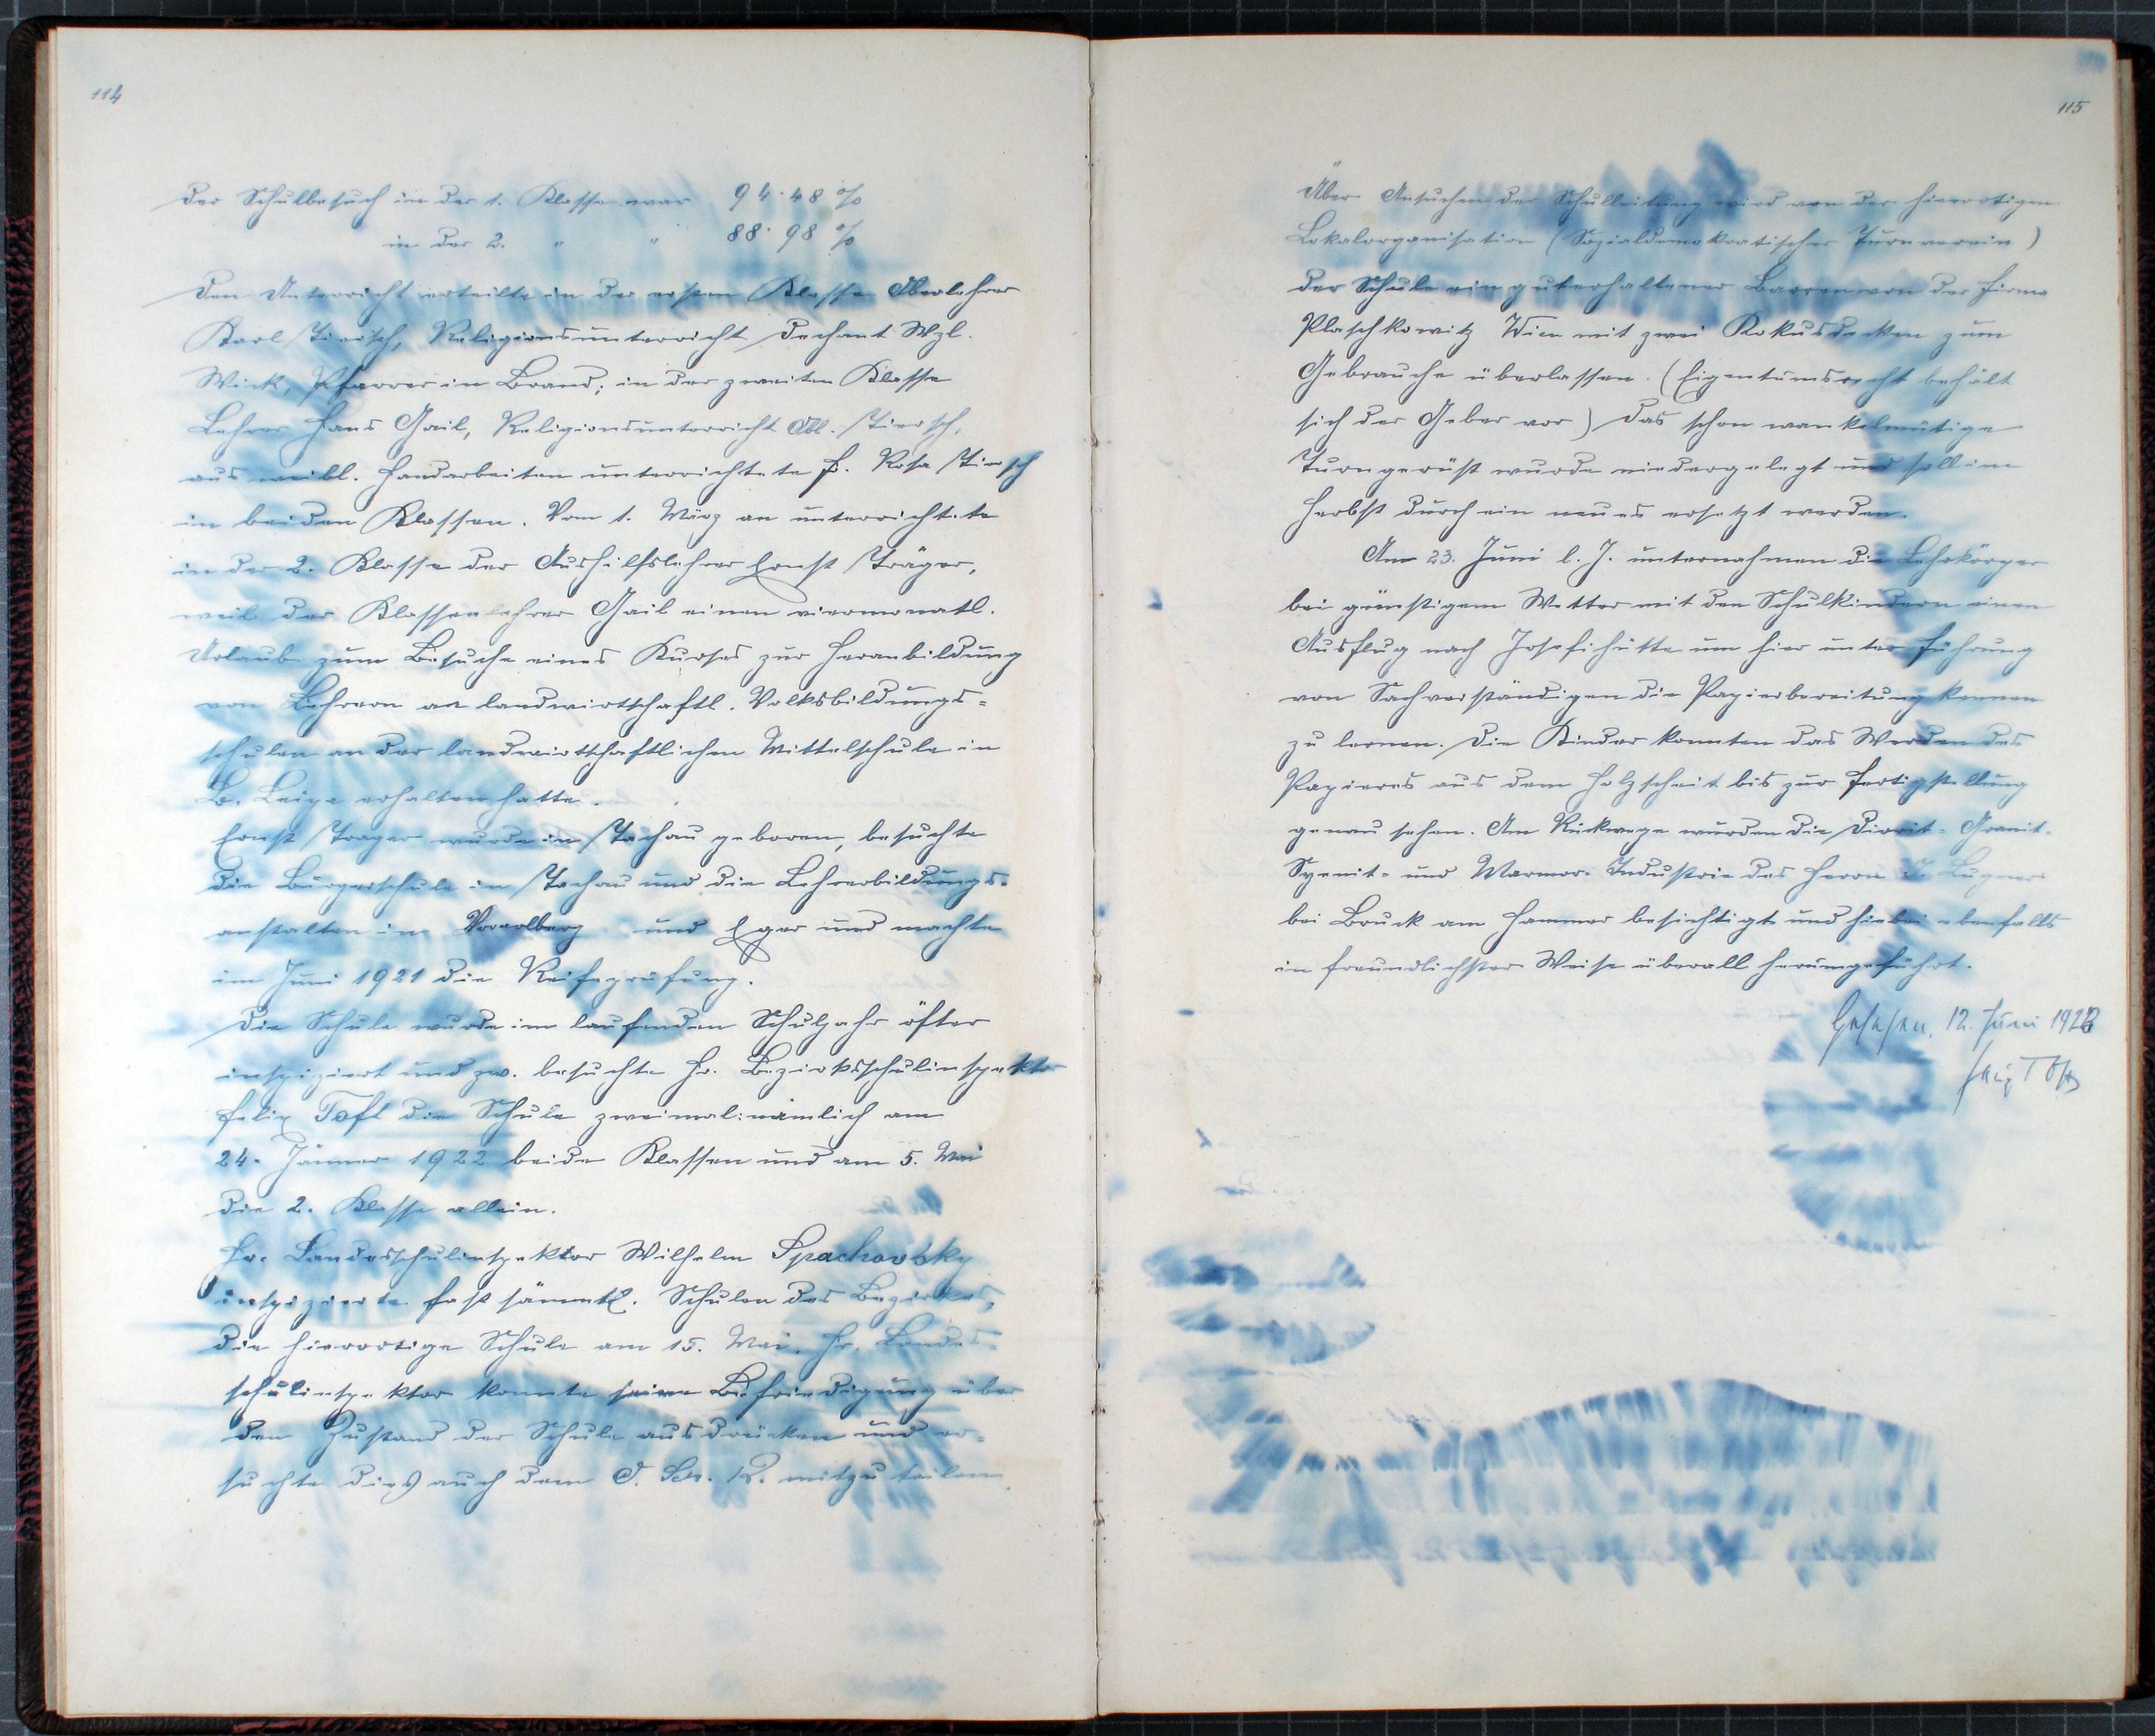 114
Der Schulbesuch in der 1. Klasse war 94·48 %
in der 2. " " 88·98 %
Den Unterricht erteilte in der ersten Klasse Oberlehrer
Karl Tiersch, Religionsunterricht Dechant Wzl.
Wirk, Pfarrer in Brand; in der zweiten Klasse
Lehrer Hans Gail, Religionsunterricht Obl. Tiersch,
aus weibl. Handarbeiten unterrichtete Fr. Rosa Tiersch
in beiden Klassen. Vom 1. März an unterrichtete
in der 2. Klasse der Aushilfslehrer Ernst Träger,
weil der Klassenlehrer Gail einen viermonatl.
Urlaub zum Besuche eines Kurses zur Heranbildung
von Lehrern an landwirtschaftl. Volksbildungs=
schulen an der landwirtschaftlichen Mittelschule in
B. Leipa erhalten hatte.
Ernst Trager wurde in Tachau geboren, besuchte
die Bürgerschule in Tachau und die Lehrerbildungs=
anstalten in Vorarlberg und Eger und machte
im Juni 1921 die Reifeprüfung.
Die Schule wurde im laufenden Schuljahr öfter
inspiziert und zw. besuchte Hr. Bezirksschulinspektor
Felix Tofl die Schule zweimal: nämlich am
24. Jänner 1922 beide Klassen und am 5. Mai
die 2. Klasse allein.
Hr. Landesschulinspektor Wilhelm Spachovsky
inspizierte fast sämmtl. Schulen des Bezirkes,
die hierortige Schule am 15. Mai. Hr. Landes=
schulinspektor konnte seine Befriedigung über
den Zustand der Schule ausdrücken und er=
suchte dies auch dem O. Sch. R. mitzuteilen
115
Über Ansuchen der Schulleitung wird von der hierortigen
Lokalorganisation (Sozialdemokratischer Turnverein)
der Schule ein guterhaltener Barren von der Firma
Plaschkowitz Wien mit zwei Kokusdecken zum
Gebrauche überlassen. (Eigentumsrecht behält
sich der Geber vor) Das schon wankelmütige
Turngerüst wurde niedergelegt und soll im
Herbst durch ein neues ersetzt werden.
Am 23. Juni l. J. unternahmen die Lehrkörper
bei günstigem Wetter mit den Schulkindern einen
Ausflug nach Josefihütte um hier unter Führung
von Sachverständigen die Papierbereitung kennen
zu lernen. Die Kinder konnten das Werden des
Papieres aus dem Holzscheit bis zur Fertigstellung
genau sehen. Am Rückwege wurden die Diorit= Granit=
Syenit= und Marmor= Industrie des Herrn J. Lugner
bei Bruck am Hammer besichtigt und hiebei ebenfalls
in freundlichster Weise überall herumgeführt.
Gesehen, 12. Juni 1923